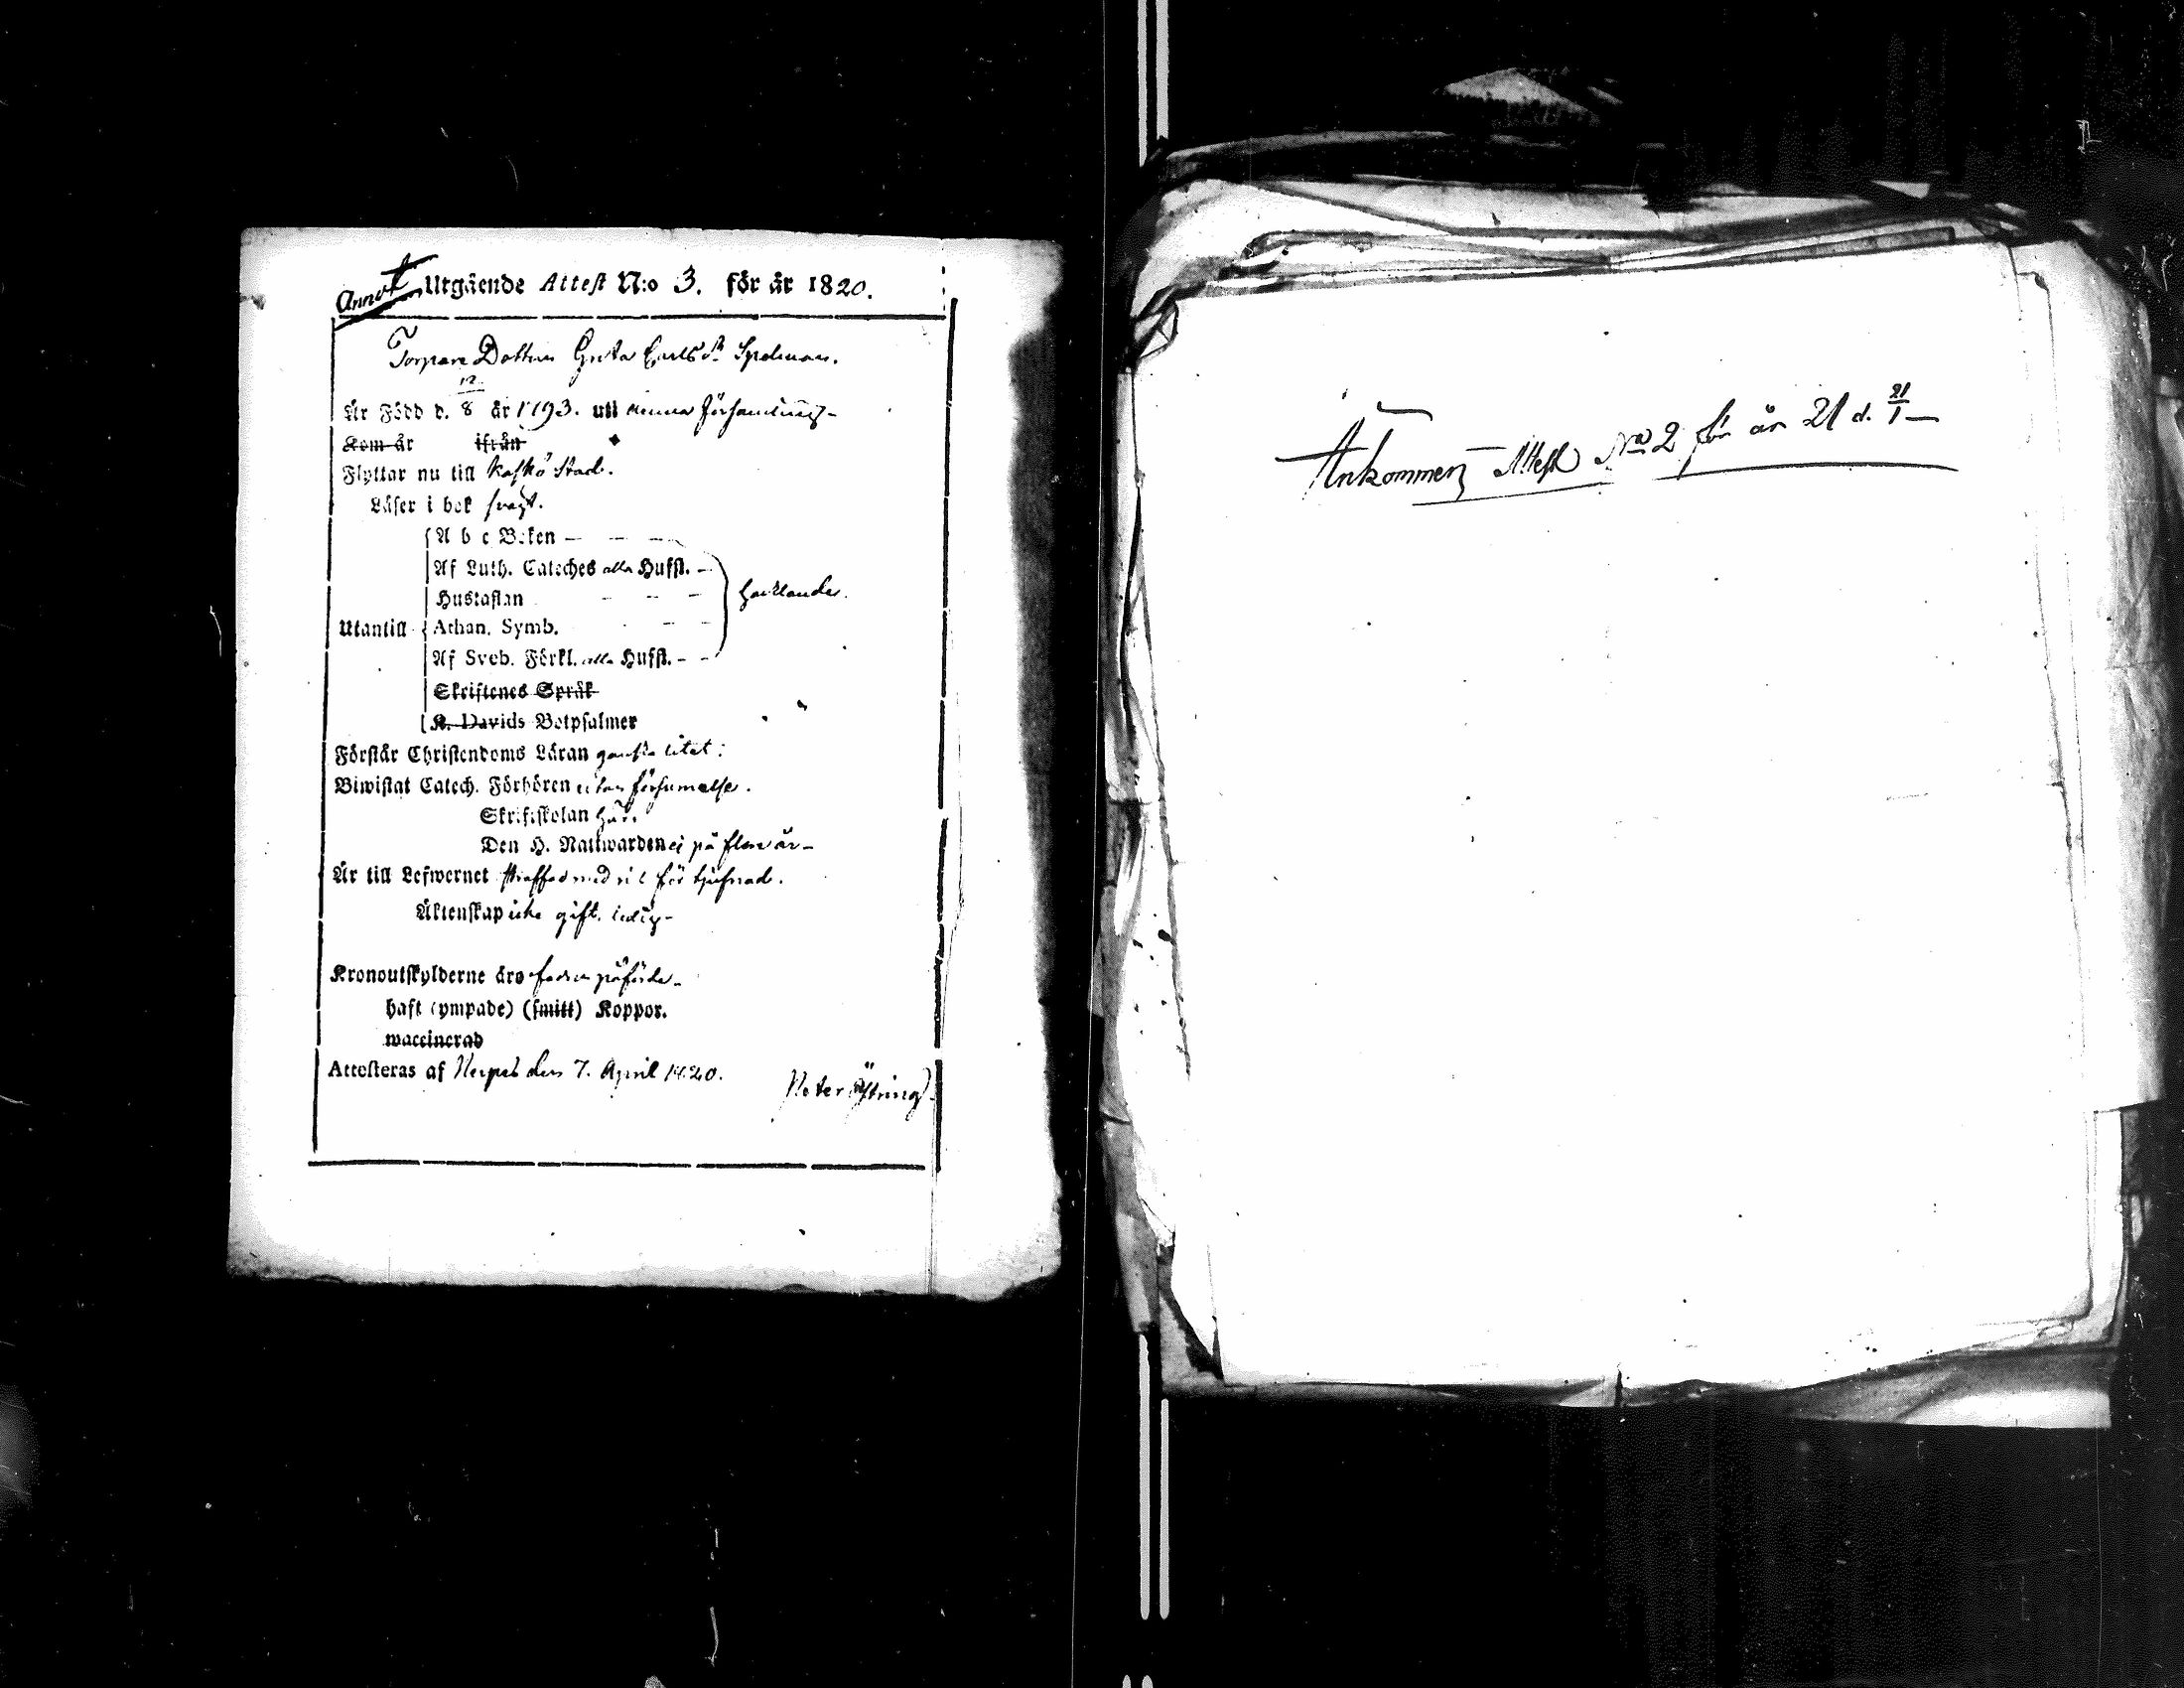 Annot Utgående Attest N:o 3. för år 1820.
Torpare Dottren Greta Carlsdr Spelman.
12
Är Född d. 8 år 1793. uti denna församling-
Kom år ifrån
Flyttar nu till Kaskö Stad.
Läser i bok svagt.
A b c Boken
Af Luth. Cateches alla Hufst.
Hustaflan
Utantill Athan. Symb.
Af Sveb. Förkl. alla Hufst.
Skriftenes Språk
K. Davids Botpsalmer
Förstår Christendoms Läran ganska litet:
Biwistat Catech. Förhören utan försumelse.
Skriftskolan här.
Den H. Nattwarden ei på flere år-
Är till Lefwernet straffad med för tjufnad.
Äktenskap icke gift. ledig-
Kronoutskylderne äro påförde-
haft (ympade) (smitt) Koppor.
waccinerad
Attesteras af Nerpes den 7. April 1820.
Peter Östring
Ankommen Attest No 2 för år 21 d. 21/1